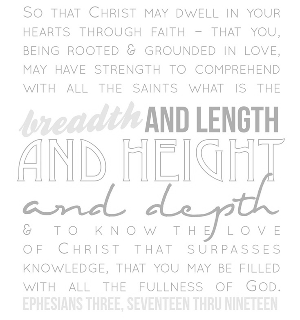 So that Christ may dwell in your
hearts through faith – that you,
being rooted & grounded in love,
may have strength to comprehend
with all the saints what is the
breadth AND LENGTH
AND HEIGHT
and depth
& to know the love
of Christ that surpasses
knowledge, that you may be filled
with all the fullness of God.
EPHESIANS THREE, SEVENTEEN THRU NINETEEN